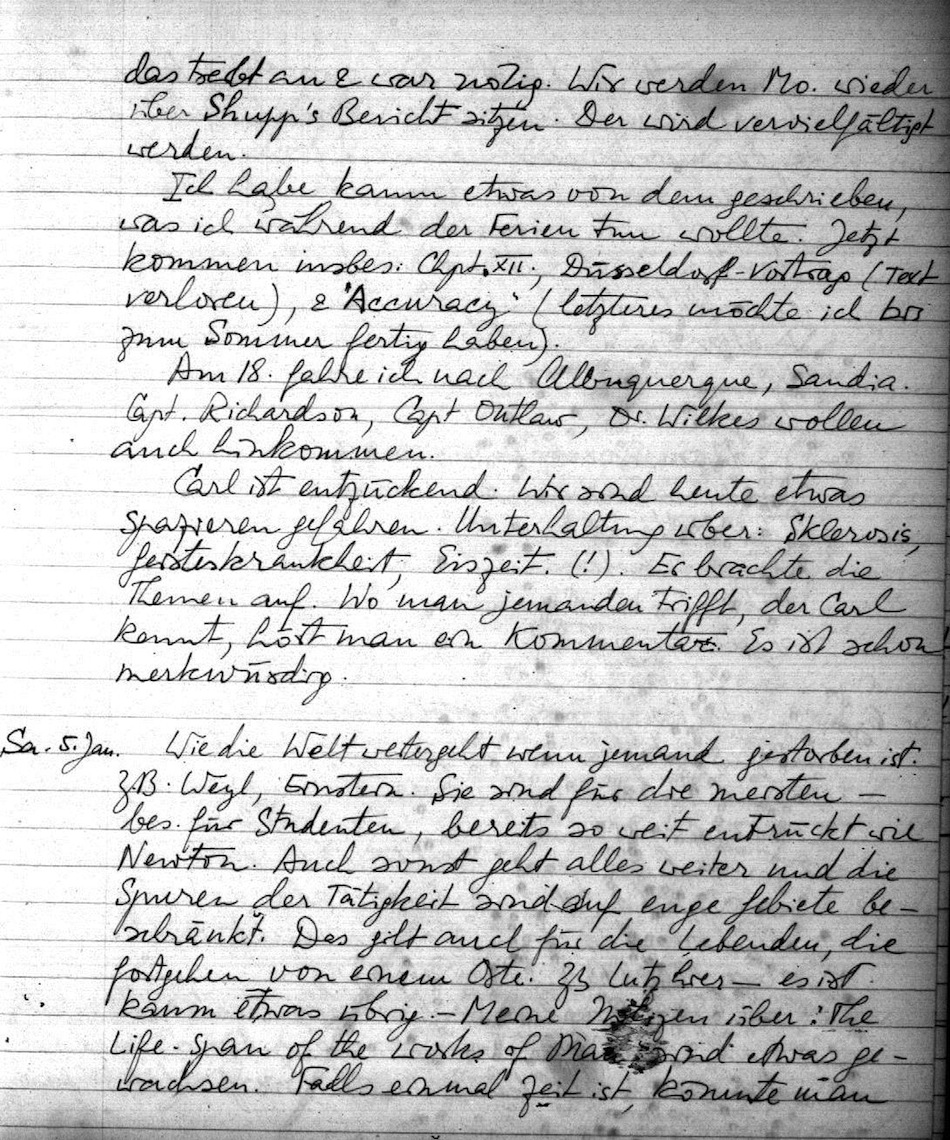 das treibt an & war nötig. Wir werden Mo. wieder
über Shupp's Bericht sitzen. Der wird vervielfältigt
werden.
Ich habe kaum etwas von dem geschrieben,
was ich während der Ferien tun wollte. Jetzt
kommen insbes: Chpt. XII; Düsseldorf-Vortrag (Text
verloren), & "Accuracy" (letzteres möchte ich bis
zum Sommer fertig haben).
Am 18. fahre ich nach Albuquerque, Sandia.
Capt. Richardson, Capt Outlaw, Dr. Wilkes wollen
auch hinkommen.
Carl ist entzückend. Wir sind heute etwas
spazieren gefahren. Unterhaltung über: Sklerosis,
Geisteskrankheit, Eiszeit. (!). Er brachte die
Themen auf. Wo man jemanden trifft, der Carl
kennt, hört man ein Kommentar. Es ist schon
merkwürdig.
Sa. 5. Jan. Wie die Welt weitergeht wenn jemand gestorben ist.
zB. Weyl, Einstein. Sie sind für die meisten –
bes. für Studenten, bereits so weit entrückt wie
Newton. Auch sonst geht alles weiter und die
Spuren der Tätigkeit sind auf enge Gebiete be-
schränkt. Das gilt auch für die Lebenden, die
fortgehen von einem Orte. zB Lutz hier – es ist
kaum etwas übrig. – Meine Notizen über: The
Life-span of the works of Man sind etwas ge-
wachsen. Falls einmal Zeit ist, könnte man